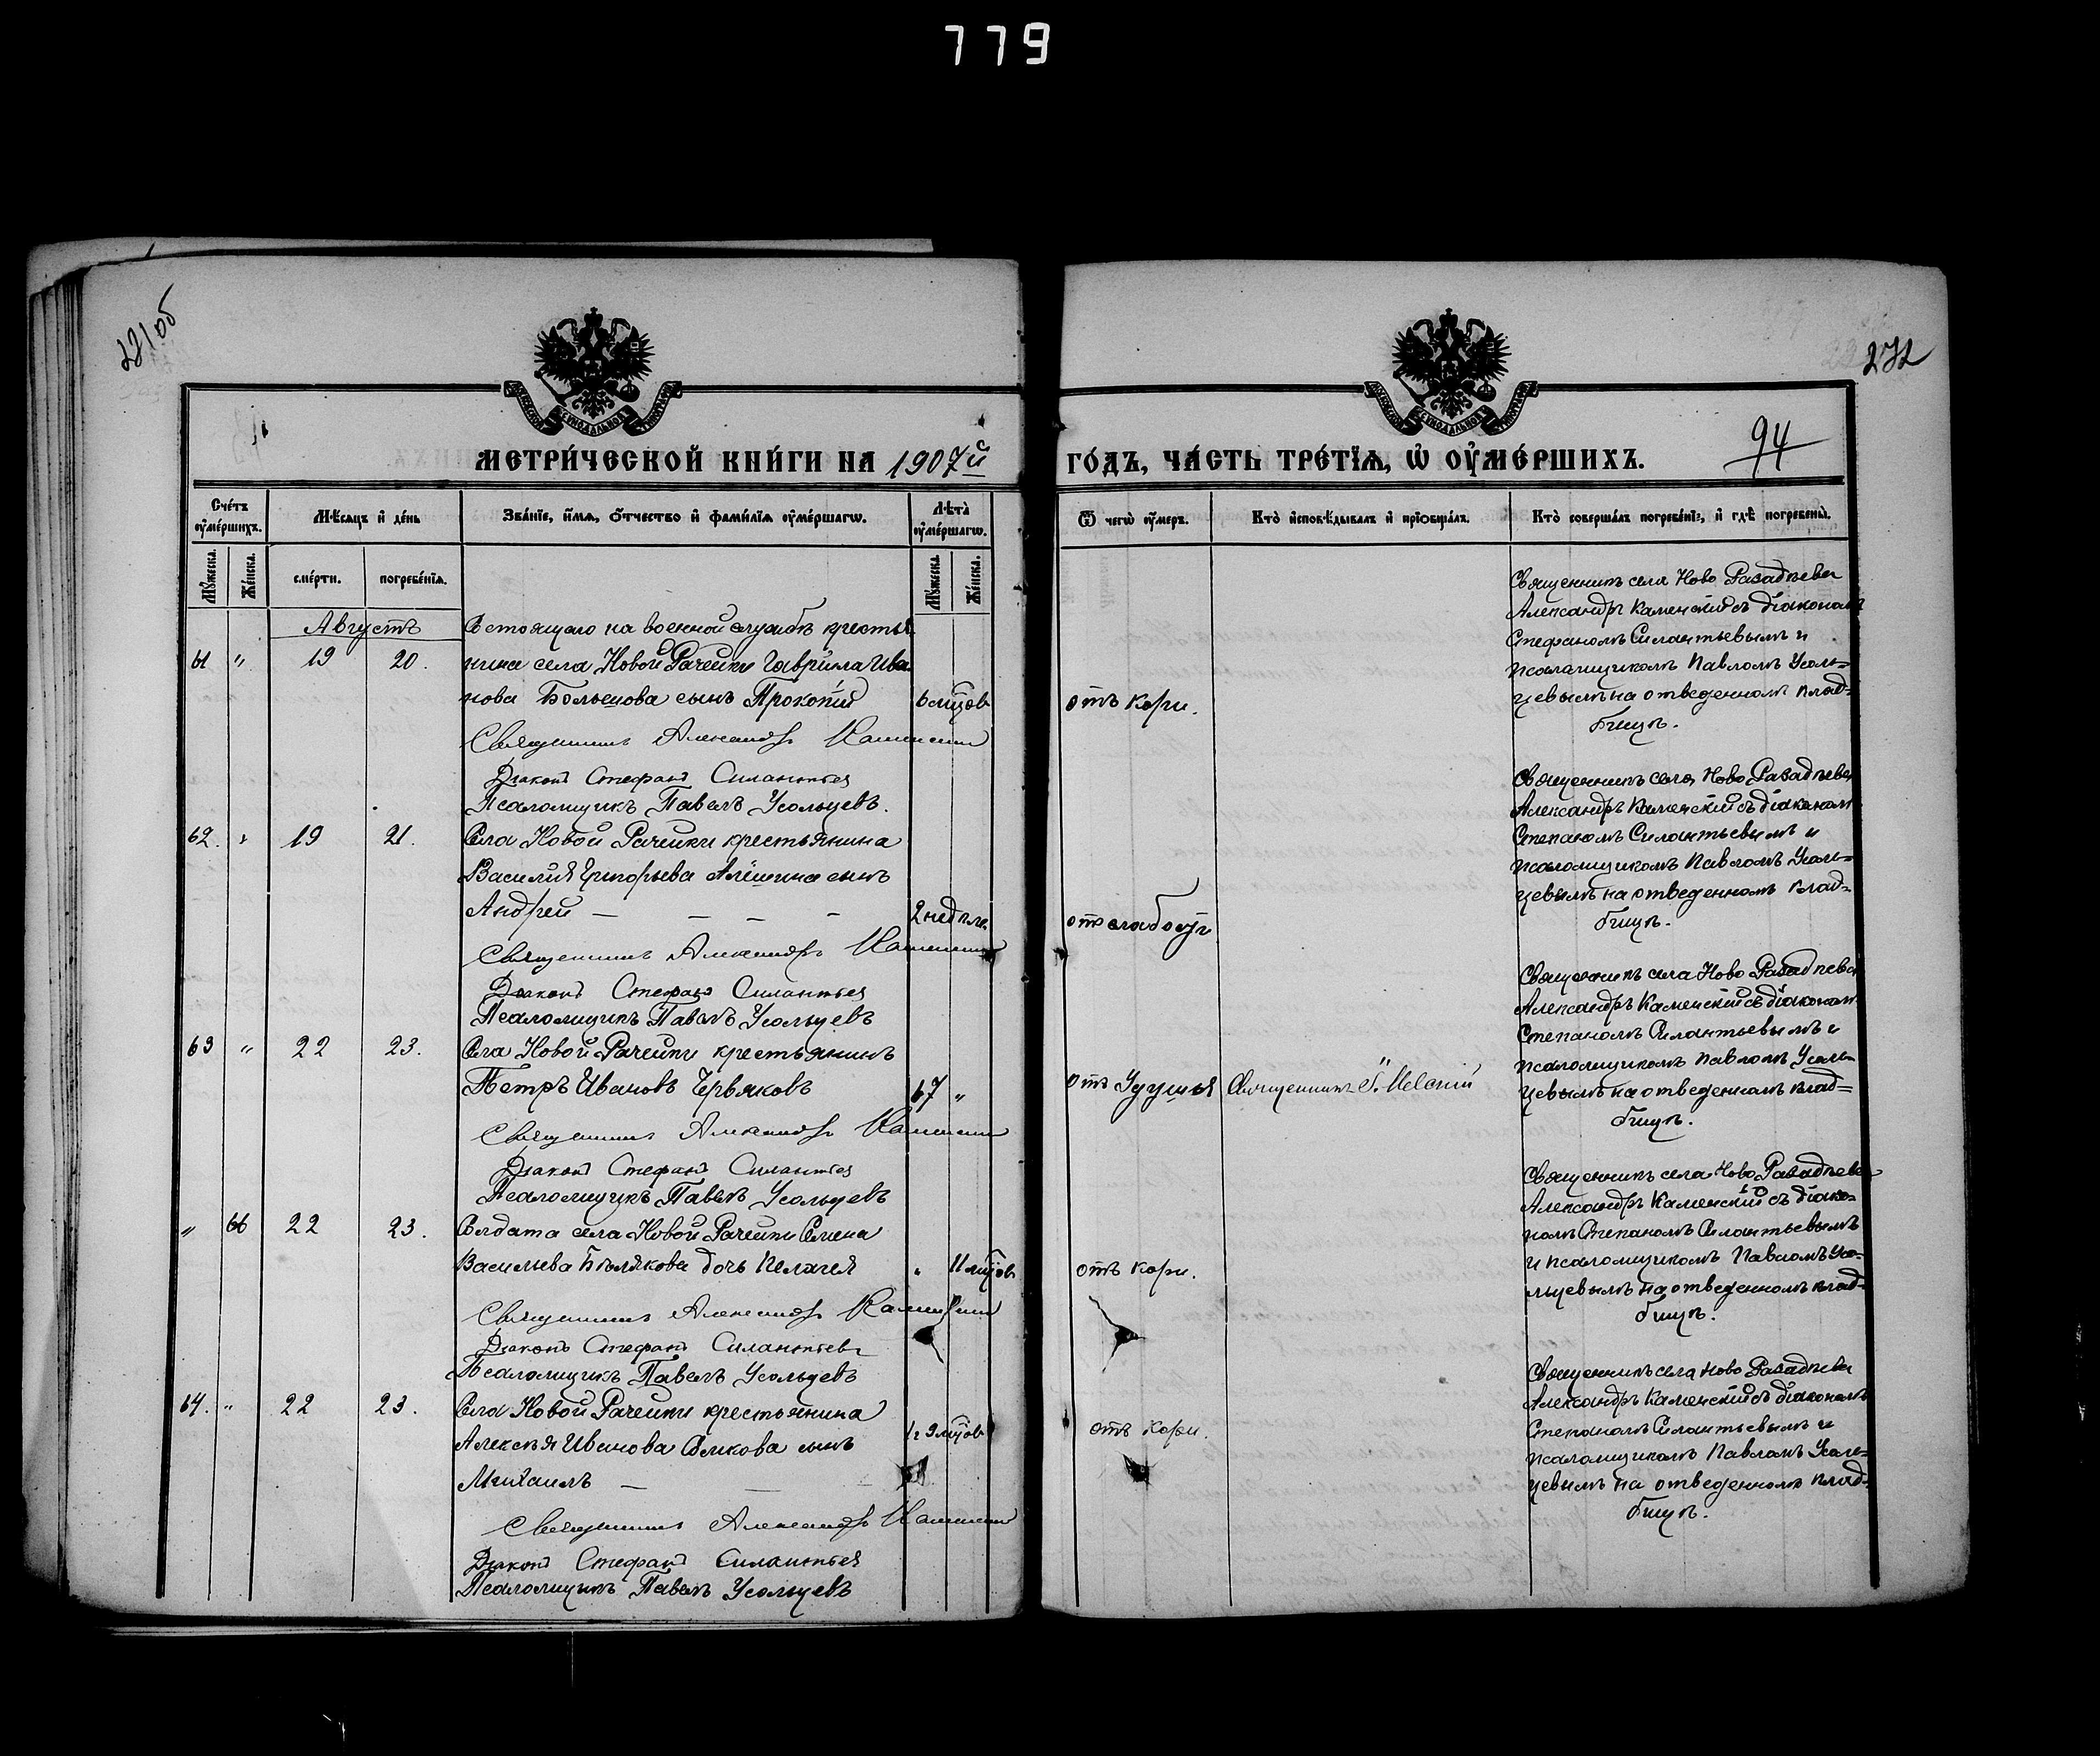 779
221об
272
94
МЕТРИ́ЧЕСКОЙ КНИ́ГИ НА 1907й
ГО́ДЪ, ЧА́СТЬ ТРЕ́ТЇѦ, Ѡ҆ ОУ҆МЕ́РШИХЪ.
Сче́тъ оу҆ме́ршихъ.
Мѣ́сѧцъ и҆ де́нь
Зва́нїе, и҆́мѧ, ѻ҆́тчество и҆ фами́лїѧ оу҆ме́ршагѡ.
Лѣ̀та̀ оу҆ме́ршагѡ.
Ѿ чегѡ̀ оу҆́меръ.
Кто̀ и҆сповѣ́дывалъ и҆ прїѻбща́лъ.
Кто̀ соверша́лъ погребе́нїе, и҆ гдѣ̀ погребены̀.
Мꙋ́жеска. Же́нска.
сме́рти.
погребе́нїѧ.
Мꙋ́жеска. Же́нска.
Августъ
Состоящаго на военной службѣ крестья-
61 " 19 20. нина села Новой Рачейки Гаврiила Ива
нова Большова сынъ Прокопiй 6 мцов
отъ кори.
Священникъ Александръ Каменскiй
Дiаконъ Стефанъ Силантьев
Псаломщикъ Павелъ Усольцевъ.
Священникъ села Ново Размѣева
Александръ Каменскiй съ дiакономъ
Стефаномъ Силантьевымъ и
псаломщикомъ Павломъ Усоль=
цевымъ на отведенномъ клад-
бищѣ.
62. " 19 21. Села Новой Рачейки крестьянина
Василiя Григорьева Алёшина сынъ
Андрей — — — — 2 недѣли.
от слабости
Священникъ Александръ Каменскiй
Дiаконъ Стефанъ Силантьев
Псаломщикъ Павелъ Усольцевъ
Священникъ села Ново
Александръ Каменскiй съ дiакономъ
Степаномъ Силантьевымъ и
псаломщикомъ Павломъ Усоль=
цевымъ на отведенномъ клад=
бищѣ.
63 " 22 23. Села Новой Рачейки крестьянинъ
Петръ Ивановъ Червяковъ 67 "
отъ Удушья Священникъ
Священникъ Александръ Каменскiй
Дiаконъ Стефанъ Силантьев
Псаломщикъ Павелъ Усольцевъ
Священникъ села Ново
Александръ Каменскiй съ дiакономъ
Степаномъ Силантьевымъ и
псаломщикомъ Павломъ Усоль-
цевымъ на отведенномъ клад=
бищѣ.
" 66 22 23. Солдата села Новой Рачейки Семена
Васильева Бѣлякова дочь Пелагея " 11 мцов
отъ кори.
Священникъ Александръ Каменскiй
Дiаконъ Стефанъ Силантьевъ
Псаломщикъ Павелъ Усольцевъ
Священникъ села Ново
Александръ Каменскiй съ дiако=
номъ Степаномъ Силантьевымъ
и псаломщикомъ Павломъ Усо-
льцевымъ на отведенномъ клад-
бищѣ.
64. " 22 23. Села Новой Рачейки крестьянина
Алексѣя Иванова сынъ 1 г 9 мцов
Михаилъ — — —
отъ кори.
Священникъ Александръ Каменскiй
Дiаконъ Стефанъ Силантьев
Псаломщикъ Павелъ Усольцевъ
Священникъ села Ново
Александръ Каменскiй съ дiакономъ
Степаномъ Силантьевымъ и
псаломщикомъ Павломъ Усоль=
цевымъ на отведенномъ клад-
бищѣ.